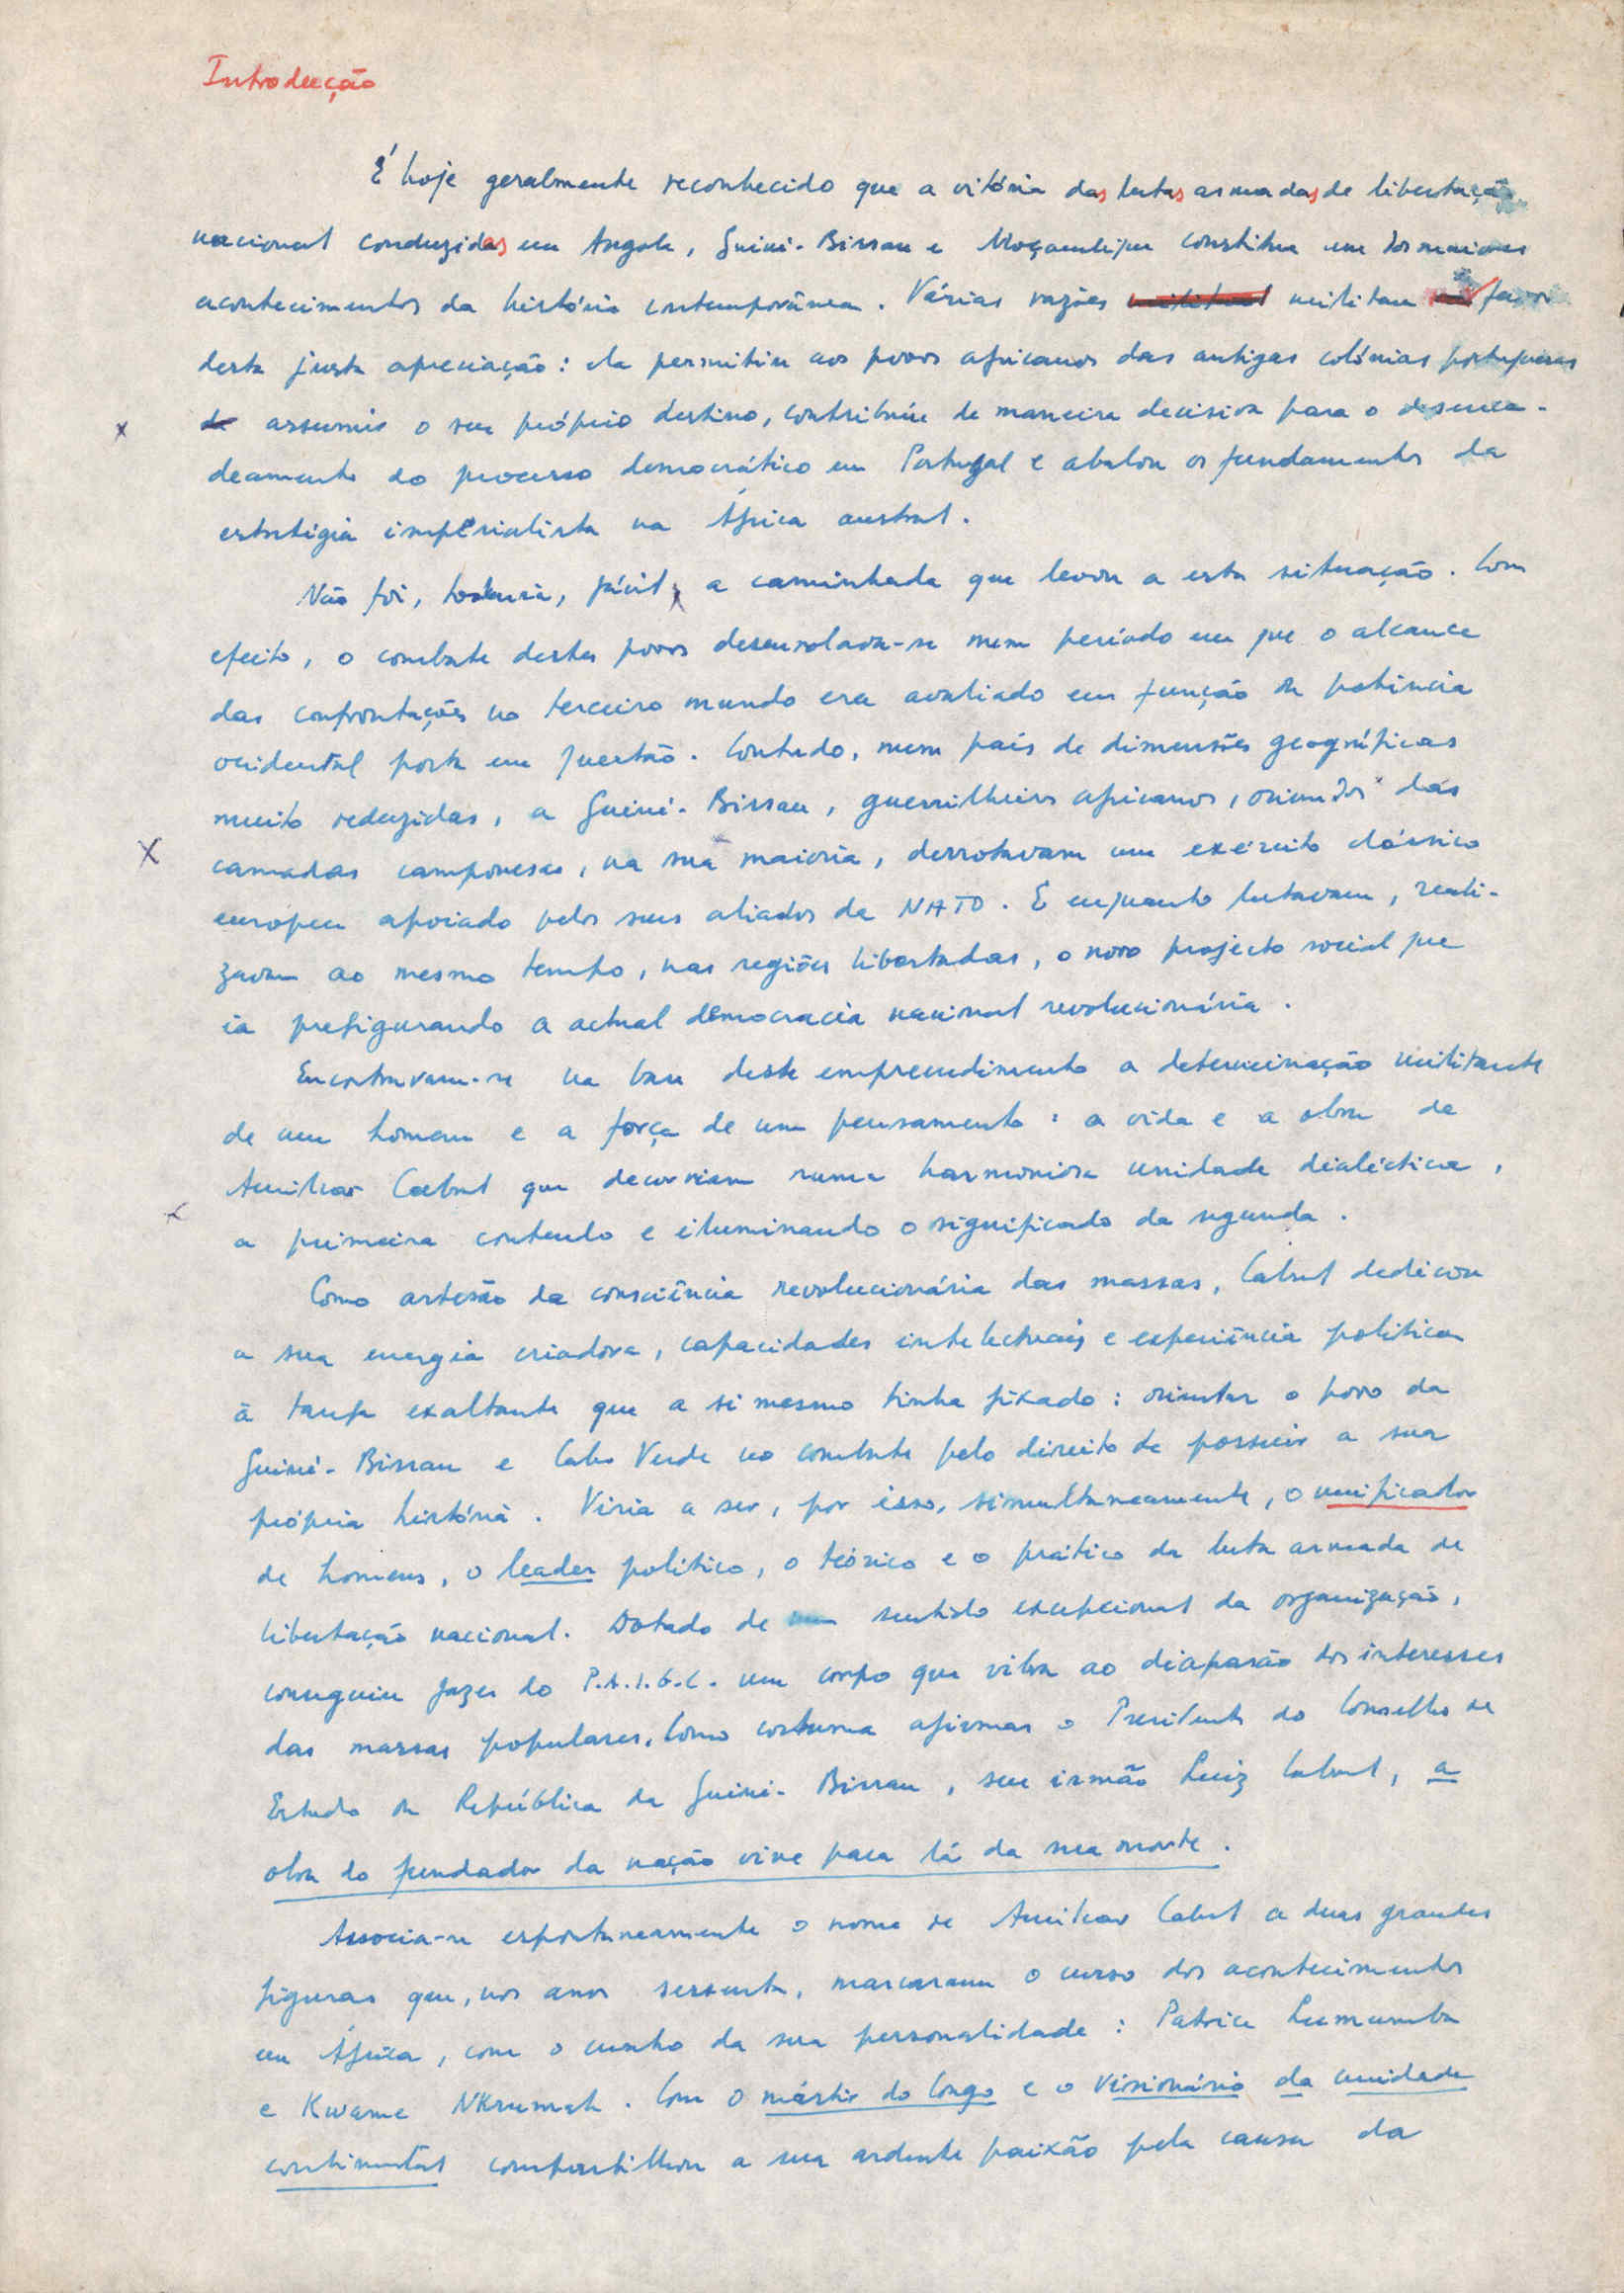 Introducção
É hoje geralmente reconhecido que a vitória das lutas armadas de libertação
nacional conduzidas em Angola, Guiné-Bissau e Moçambique constitue um dos maiores
acontecimentos da história contemporânea. Várias razões militam militam favor
desta justa apreciação: ela permitiu aos povos africanos das antigas colónias portuguesas
de assumir o seu próprio destino, contribuiu de maneira decisiva para o desenca-
deamento do processo democrático em Portugal e abalou os fundamentos da
estratégia imperialista na África austral.
Não foi, todavia, fácil, a caminhada que levou a esta situação. Com
efeito, o combate destes povos desenrolava-se num período em que o alcance
das confrontações no terceiro mundo era avaliado em função da potência
ocidental posta em questão. Contudo, num país de dimensões geográficas
muito reduzidas, a Guiné-Bissau, guerrilheiros africanos, oriundos das
camadas camponesas, na sua maioria, derrotavam um exército clássico
europeu apoiado pelos seus aliados da NATO. E enquanto lutavam, reali-
zavam ao mesmo tempo, nas regiões libertadas, o novo projecto social que
ia prefigurando a actual democracia nacional revolucionária.
Encontravam-se na base deste empreendimento a determinação militante
de um homem e a força de um pensamento: a vida e a obra de
Amilcar Cabral que decorriam numa harmoniosa unidade dialéctica,
a primeira contendo e iluminando o significado da segunda.
Como artesão da consciência revolucionária das massas, Cabral dedicou
a sua energia criadora, capacidades intelectuais e experiência política
à tarefa exaltante que a si mesmo tinha fixado: orientar o povo da
Guiné-Bissau e Cabo Verde no combate pelo direito de possuir a sua
própria história. Viria a ser, por isso, simultaneamente, o unificador
de homens, o leader político, o teórico e o prático da luta armada de
libertação nacional. Dotado de um sentido excepcional da organização,
conseguiu fazer do P.A.I.G.C. um corpo que vibra ao diapasão dos interesses
das massas populares. Como costuma afirmar o Presidente do Conselho de
Estado da República da Guiné-Bissau, seu irmão Luiz Cabral, a
obra do fundador da nação vive para lá da sua morte.
Associa-se espontaneamente o nome de Amilcar Cabral a duas grandes
figuras que, nos anos sessenta, marcaram o curso dos acontecimentos
em África, com o cunho da sua personalidade: Patrice Lumumba
e Kwame NKrumah. Com o mártir do Congo e o visionário da unidade
continental compartilhou a sua ardente paixão pela causa da